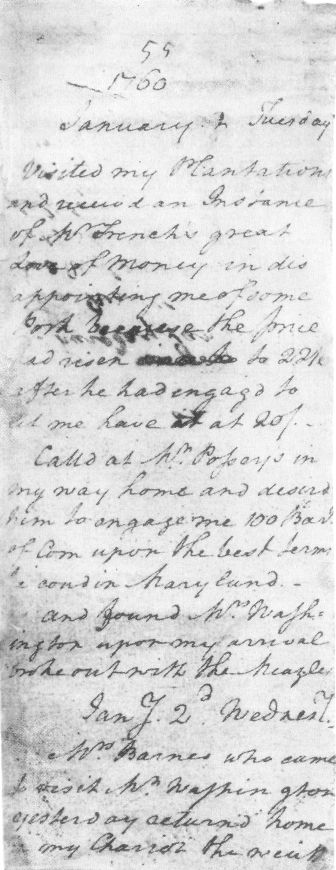 55
1760
January 1 Tuesday
Visited my Plantations
and receivd an Instance
of Mr. French's great
Love of Money in dis
appointing me of some
Pork because the price
had risen to 22/6
after he had engagd to
let me have it at 20/.
Calld at Mr. Posseys in
my way home and desird
him to engage me 100 Barl.
of Corn upon the best terms
he coud in Maryland. -
and found Mrs. Wash-
ington upon my arrival
broke out with the Meazles
Jany. 2d. Wednesy.
Mrs. Barnes who came
to visit Mrs. Washington
yesterday returnd home
in my Chariot the